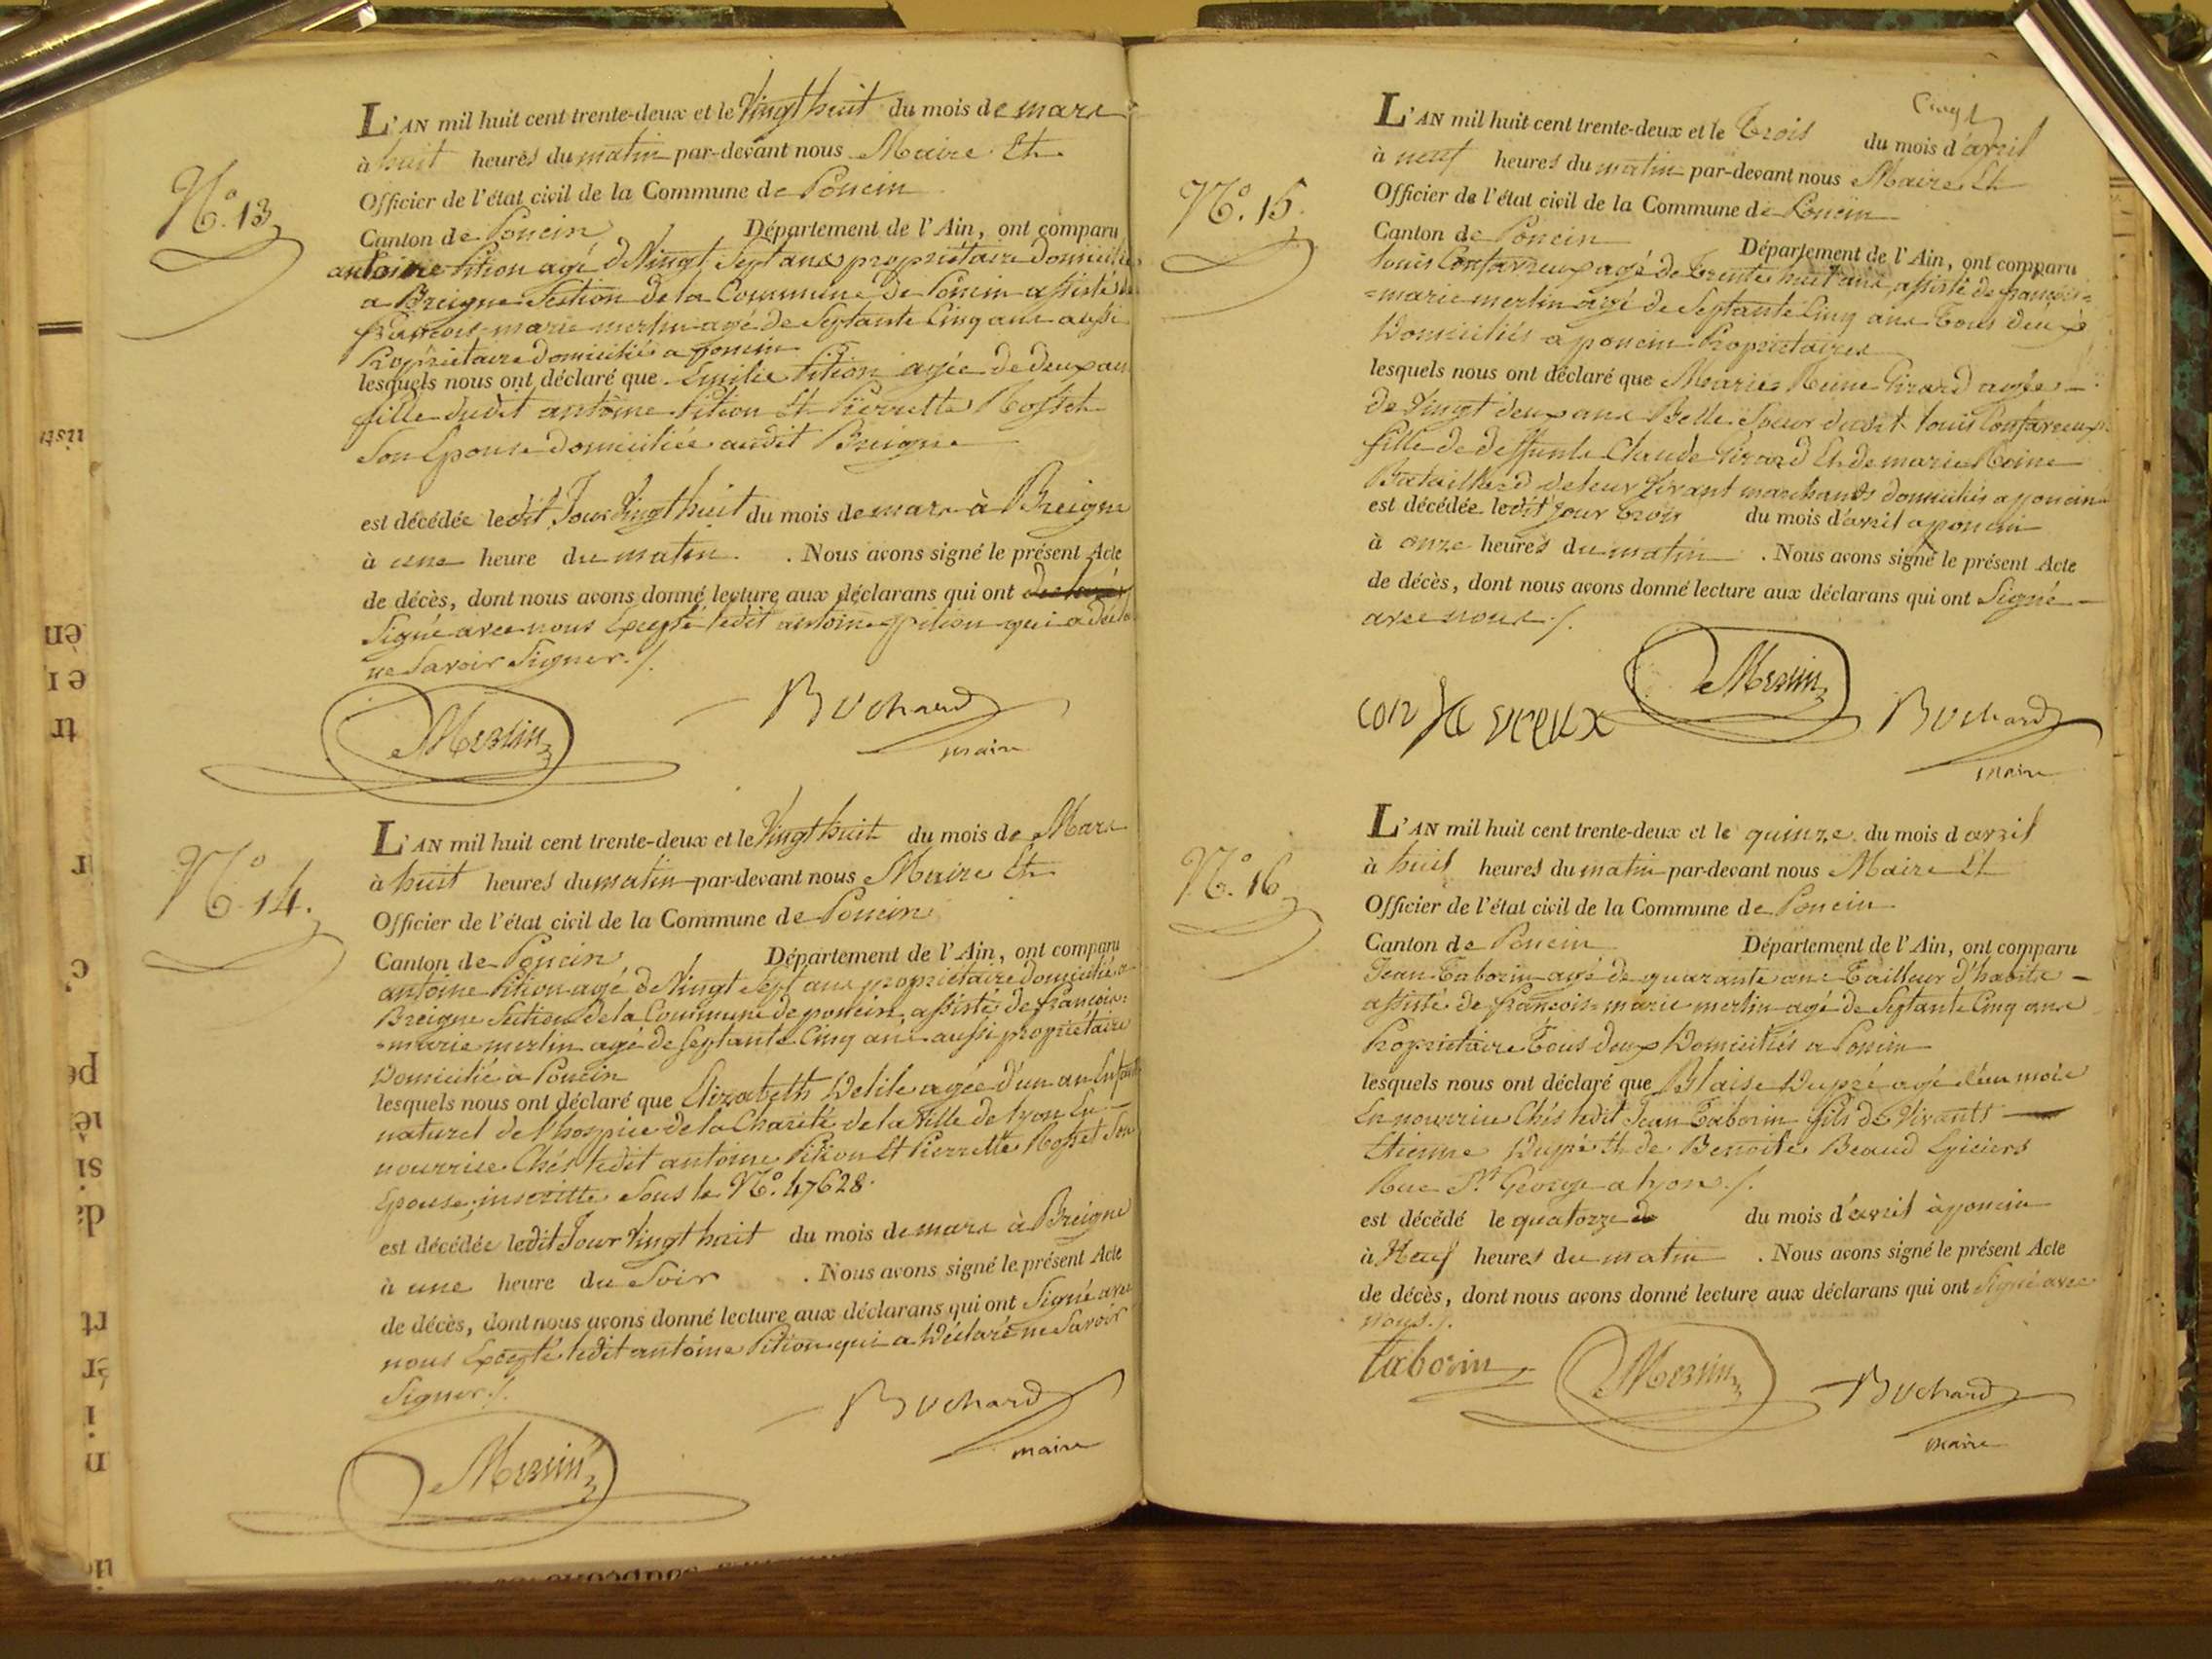 N.° 13
L'AN mil huit cent trente-deux et le Vingt huit du mois de mars
à huit heures du matin par-devant nous Maire Et
Officier de l'état civil de la Commune de Poncin
Canton de Poncin Département de l'Ain, ont comparu
antoine Pition agé de Vingt Sept ans propriétaire domicilié
a Breigne Section de la Commune de Poncin assisté de
françois-marie merlin agé de Septante Cinq ans aussi
Propriétaire domicilié a poncin
lesquels nous ont déclaré que Emilie Pition agée de deux ans
fille dudit antoine Pition Et Pierrette Rosset
Son Epouse domiciliée audit Breigne
est décédée ledit Jour Vingt huit du mois de mars à Breigne
à une heure du matin . Nous avons signé le présent Acte
de décès, dont nous avons donné lecture aux déclarans qui ont
Signé avec nous Excepté ledit antoine pition qui a déclaré
ne Savoir Signer ./.
Merlin
Buchard
maire
N.° 14.
L'AN mil huit cent trente-deux et le Vingt huit du mois de Mars
à huit heures du matin par-devant nous Maire Et
Officier de l'état civil de la Commune de Poncin
Canton de Poncin Département de l'Ain, ont comparu
antoine Pition agé de Vingt Sept ans propriétaire domicilié a
Breigne Section de la Commune de poncin, assisté de françois=
=marie merlin agé de Septante Cinq ans aussi propriétaire
Domicilié à Poncin
lesquels nous ont déclaré que Elizabeth Delile agée d'un an Enfant
naturel de l'hospice de la Charité de la Ville de lyon En
nourrice Chés ledit antoine Pition Et Pierrette Rosset Son
Epouse, inscritte Sous le N.° 47628.
est décédée ledit Jour Vingt huit du mois de mars à Breigne
à une heure du Soir . Nous avons signé le présent Acte
de décès, dont nous avons donné lecture aux déclarans qui ont Signé avec
nous Excepté ledit antoine Pition qui a Déclaré ne Savoir
Signer ./.
Merlin
Buchard
maire
N.° 15.
L'AN mil huit cent trente-deux et le Trois du mois d'avril
à neuf heures du matin par-devant nous Maire Et
Officier de l'état civil de la Commune de Poncin
Canton de Poncin Département de l'Ain, ont comparu
Louis Confavreux agé de Trente huit ans, assisté de françois=
=marie merlin agé de Septante Cinq ans Tous deux
Domiciliés a poncin Propriétaires
lesquels nous ont déclaré que Marie Reine Girard agée
de Vingt deux ans Belle Soeur dudit Louis Confavreux
fille de deffunts Claude Girard Et de marie Reine
Bataillard de leur Vivant marchands domiciliés a poncin
est décédée ledit jour trois du mois d'avril a poncin
à onze heures du matin . Nous avons signé le présent Acte
de décès, dont nous avons donné lecture aux déclarans qui ont Signé
avec nous ./.
confavreux
Merlin
Buchard
maire
N.° 16
L'AN mil huit cent trente-deux et le quinze du mois d avril
à huit heures du matin par-devant nous Maire Et
Officier de l'état civil de la Commune de Poncin
Canton de Poncin Département de l'Ain, ont comparu
Jean Taborin agé de quarante ans Tailleur d'habits
assisté de françois=marie merlin agé de Septante Cinq ans
Propriétaire Tous deux Domiciliés a Poncin
lesquels nous ont déclaré que Blaise Dupré agé d'un mois
En nourrice Chés ledit Jean Taborin fils de Vivants
Etienne Dupré Et de Benoite Beaud Epiciers
Rue St George a lyon ./.
est décédé le quatorze du mois d'avril à poncin
à Neuf heures du matin . Nous avons signé le présent Acte
de décès, dont nous avons donné lecture aux déclarans qui ont Signé avec
nous ./.
Taborin
Merlin
Buchard
maire